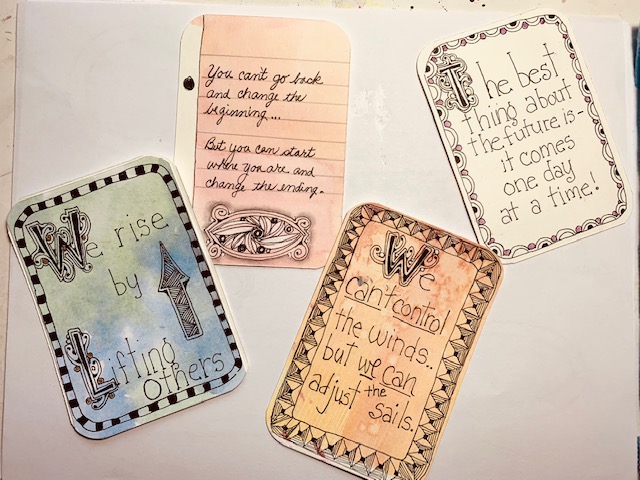 You can't go back
and change the
beginning...
But you can start
where you are and
change the ending.
The best
thing about
the future is-
it comes
one day
at a time!
We rise
by
Lifting
Others
We
can't control
the winds..
but we can
adjust the
sails.